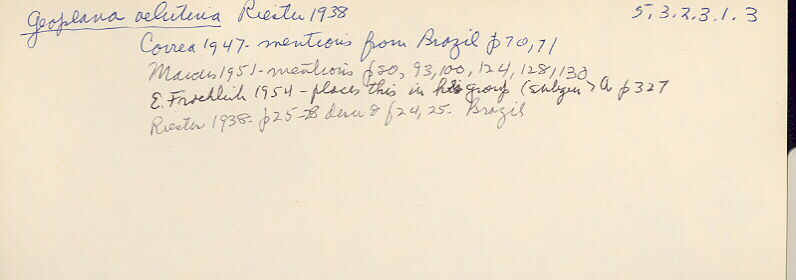 Geoplana velutina Riester 1938 5.3.2.3.1.3
Correa 1947- mentions from Brazil p 70,71
Marcus 1951- mentions p80, 93,100, 124, 128, 130
E. Froehlich 1954 - places this in his group (subgen) A p 327
Riester 1938- p25-28 descr & f24, 25- Brazil